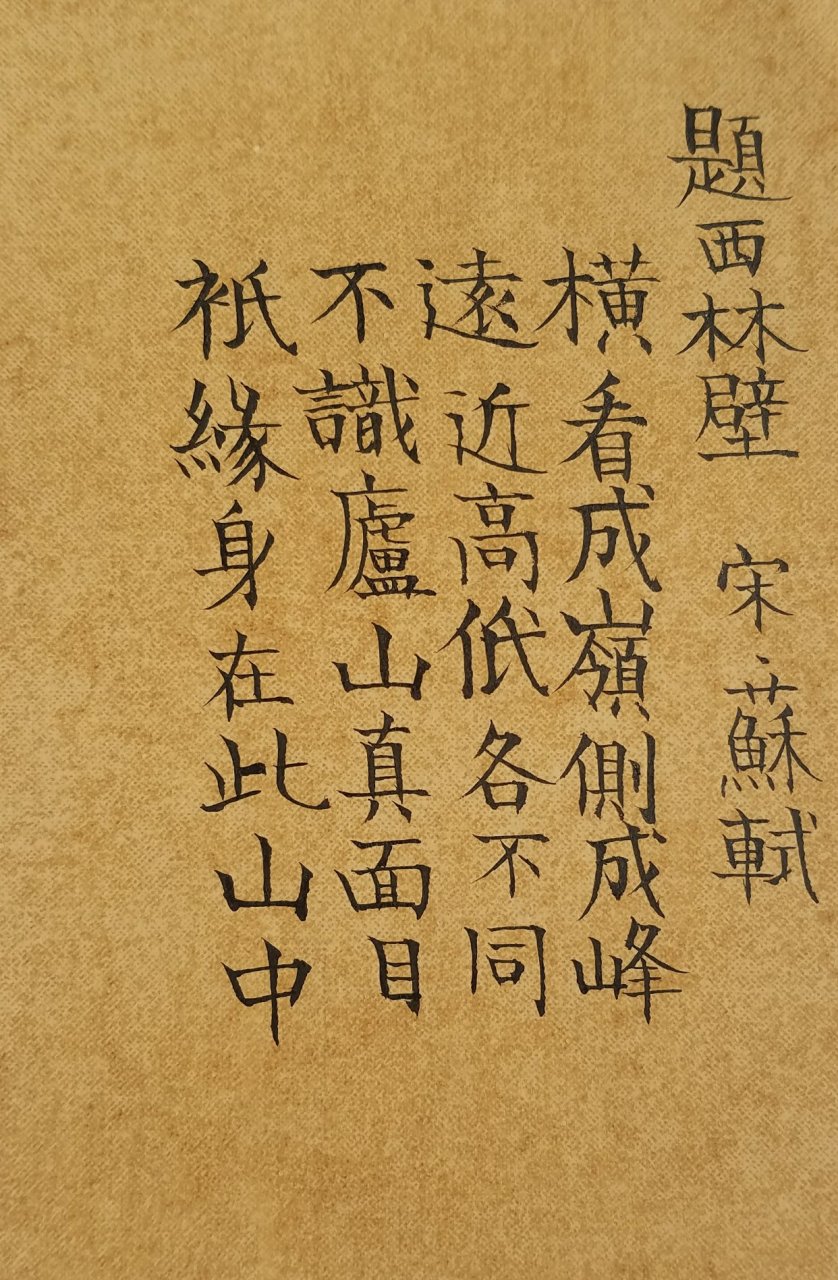 題西林壁 宋·蘇軾
橫看成嶺側成峰
遠近高低各不同
不識廬山真面目
衹緣身在此山中